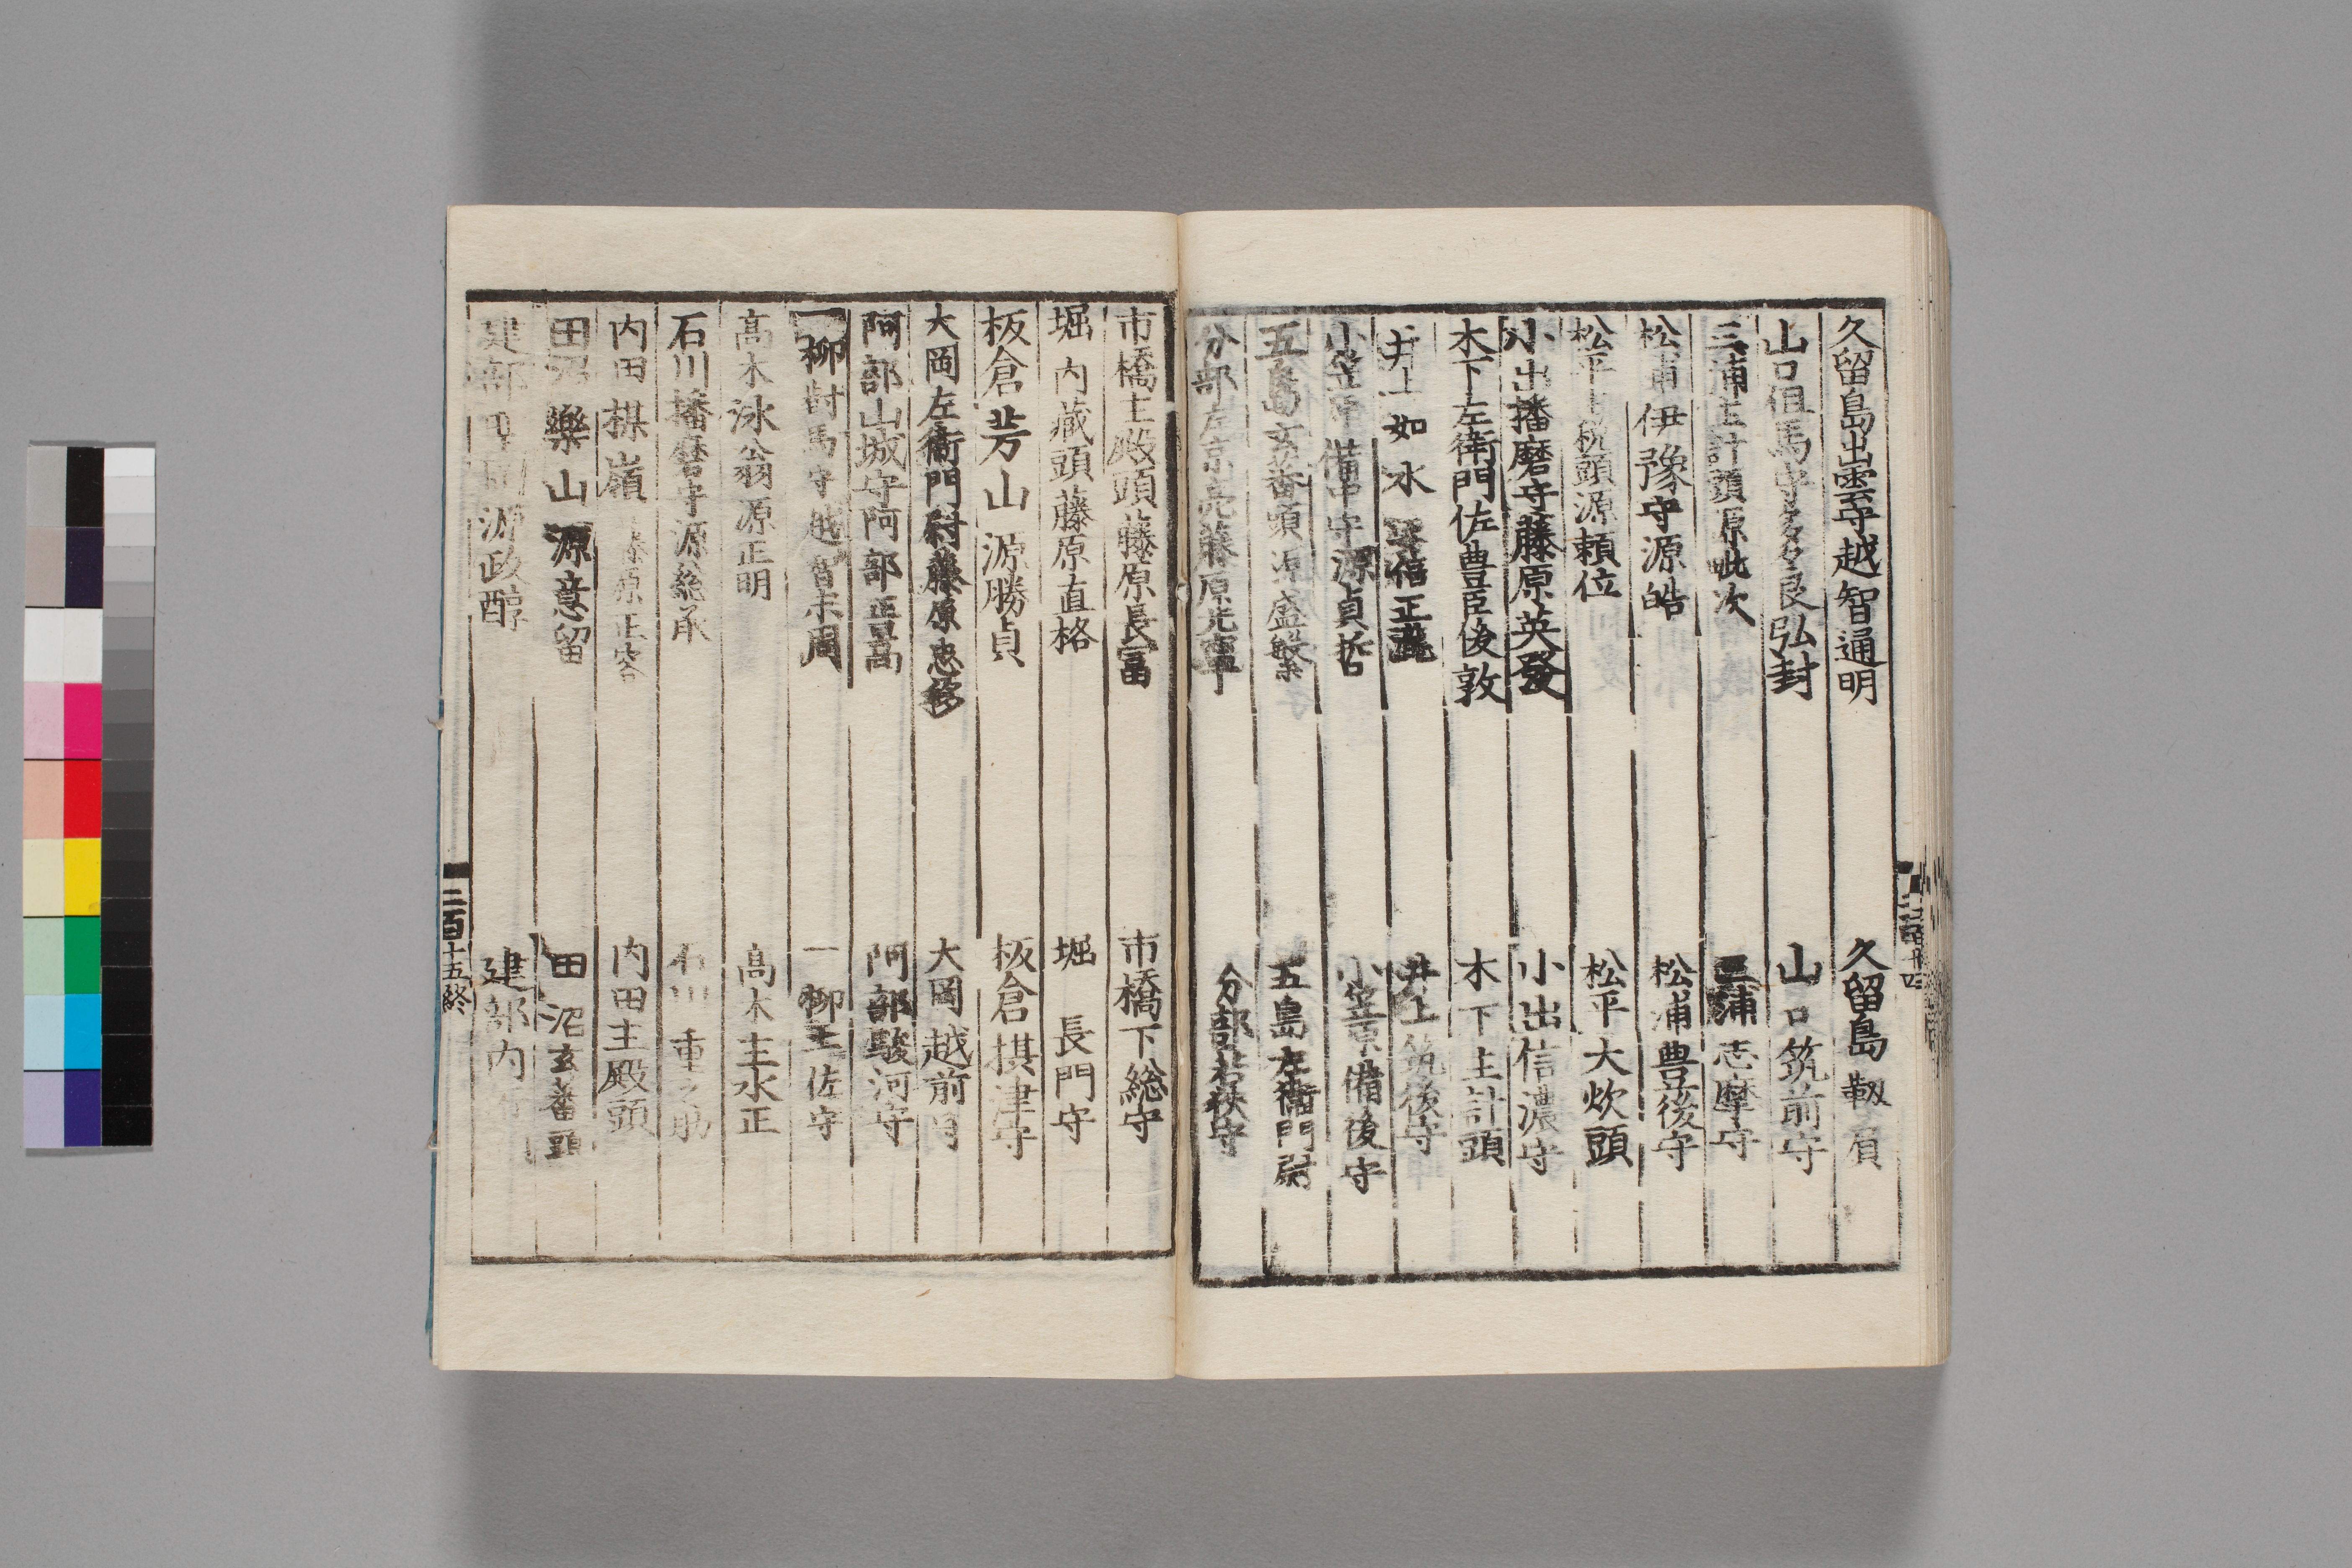 久留島出雲守越智通明 久留島靱負
山口但馬守多々良弘封 山口筑前守
三浦主計頭源毗次 三浦志摩守
松浦伊豫守源皓 松浦豊後守
松平主税頭源頼位 松平大炊頭
小出播磨守藤原英發 小出信濃守
木下左衛門佐豊臣俊敦 木下主計頭
井上如水 正瀧 井上筑後守
小笠原備中守源貞哲 小笠原備後守
五島玄蕃頭源盛繁 五島左衛門尉
分部左京亮藤原光寧 分部若狭守
二百十四
市橋主殿頭藤原長富 市橋下総守
堀内蔵頭藤原直格 堀長門守
板倉芳山源勝貞 板倉摂津守
大岡左衛門尉藤原忠移 大岡越前守
阿部山城守阿部正暠 阿部駿河守
一柳對馬守越智末周 一柳土佐守
髙木泳翁源正明 髙木主水正
石川播磨守源総承 石川重之助
内田棋嶺藤原正容 内田主殿頭
田沼樂山源意留 田沼玄蕃頭
建部 源政醇 建部内
二百十五終